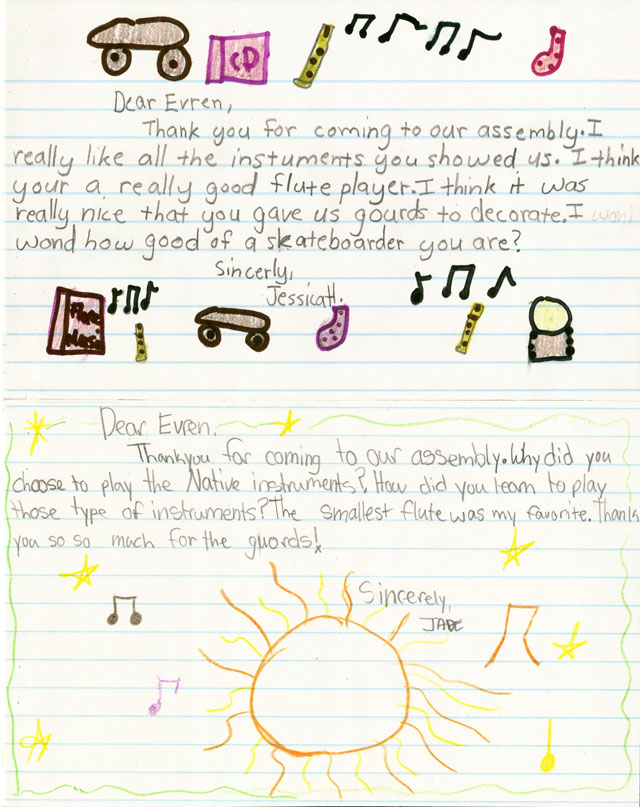 CD
Dear Evren,
Thank you for coming to our assembly. I
really like all the instuments you showed us. I think
your a really good flute player. I think it was
really nice that you gave us gourds to decorate. I want
wond how good of a skateboarder you are?
Sincerly,
Jessica H.
Flute
Music
Dear Evren.
Thankyou for coming to our assembly. Why did you
choose to play the Native instruments? How did you learn to play
those type of instruments? The smallest flute was my favorite. Thank
you so so much for the guords!
Sincerely,
JADE